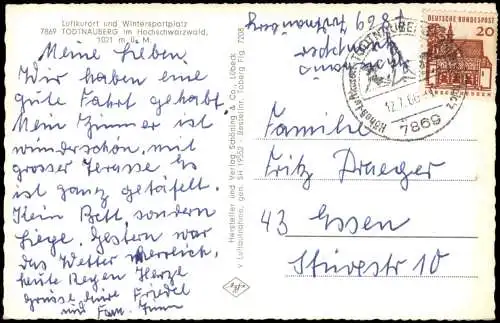 Luftkurort und Wintersportplatz
7869 TODTNAUBERG im Hochschwarzwald,
1021 m. ü. M.
Meine Lieben.
Wir haben eine
gute Fahrt gehabt.
Mein Zimmer ist
wunderschön, mit
grosser Terasse Es
ist ganz getäfelt.
Kein Bett sondern
Liege. Gestern war
das Wetter herrlich,
heute Regen Herzl
Grüsse, Eure Friedel
und Fam.
Hersteller und Verlag Schöning & Co., Lübeck
v Luftaufnahme, gen. SH 19552 - Bestellnr. Toberg Flg 7208
7869
DEUTSCHE BUNDESPOST
20
TODTNAUBERG
12.7.66
7869
Familie
Fritz Praeger
43 Essen
Stüvestr 10